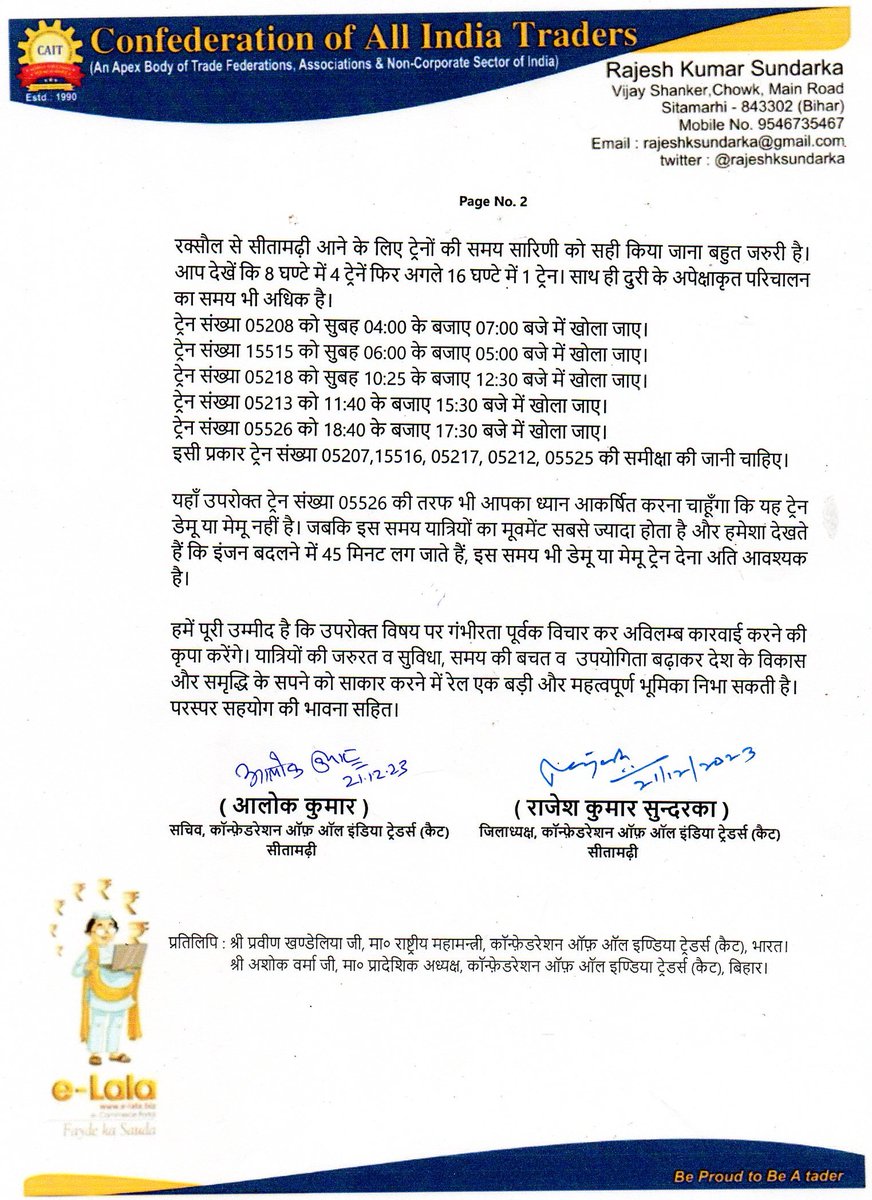 CAIT
Estd.: 1990
Confederation of All India Traders
(An Apex Body of Trade Federations, Associations & Non-Corporate Sector of India)
Rajesh Kumar Sundarka
Vijay Shanker,Chowk, Main Road
Sitamarhi - 843302 (Bihar)
Mobile No. 9546735467
Email : rajeshksundarka@gmail.com
twitter : @rajeshksundarka
Page No. 2
रक्सौल से सीतामढ़ी आने के लिए ट्रेनों की समय सारिणी को सही किया जाना बहुत जरुरी है।
आप देखें कि 8 घण्टे में 4 ट्रेनें फिर अगले 16 घण्टे में 1 ट्रेन। साथ ही दुरी के अपेक्षाकृत परिचालन
का समय भी अधिक है।
ट्रेन संख्या 05208 को सुबह 04:00 के बजाए 07:00 बजे में खोला जाए।
ट्रेन संख्या 15515 को सुबह 06:00 के बजाए 05:00 बजे में खोला जाए।
ट्रेन संख्या 05218 को सुबह 10:25 के बजाए 12:30 बजे में खोला जाए।
ट्रेन संख्या 05213 को 11:40 के बजाए 15:30 बजे में खोला जाए।
ट्रेन संख्या 05526 को 18:40 के बजाए 17:30 बजे में खोला जाए।
इसी प्रकार ट्रेन संख्या 05207,15516, 05217, 05212, 05525 की समीक्षा की जानी चाहिए।
यहाँ उपरोक्त ट्रेन संख्या 05526 की तरफ भी आपका ध्यान आकर्षित करना चाहूँगा कि यह ट्रेन
डेमू या मेमू नहीं है। जबकि इस समय यात्रियों का मूवमेंट सबसे ज्यादा होता है और हमेशा देखते
हैं कि इंजन बदलने में 45 मिनट लग जाते हैं, इस समय भी डेमू या मेमू ट्रेन देना अति आवश्यक
है।
हमें पूरी उम्मीद है कि उपरोक्त विषय पर गंभीरता पूर्वक विचार कर अविलम्ब कारवाई करने की
कृपा करेंगे। यात्रियों की जरुरत व सुविधा, समय की बचत व उपयोगिता बढ़ाकर देश के विकास
और समृद्धि के सपने को साकार करने में रेल एक बड़ी और महत्वपूर्ण भूमिका निभा सकती है।
परस्पर सहयोग की भावना सहित।
आलोक कुमार
21.12.23
21/12/2023
( आलोक कुमार )
( राजेश कुमार सुन्दरका )
सचिव, कॉन्फ़ेडरेशन ऑफ़ ऑल इंडिया ट्रेडर्स (कैट)
जिलाध्यक्ष, कॉन्फ़ेडरेशन ऑफ़ ऑल इंडिया ट्रेडर्स (कैट)
सीतामढ़ी
सीतामढ़ी
प्रतिलिपि : श्री प्रवीण खण्डेलिया जी, मा० राष्ट्रीय महामन्त्री, कॉन्फ़ेडरेशन ऑफ़ ऑल इण्डिया ट्रेडर्स (कैट), भारत।
श्री अशोक वर्मा जी, मा० प्रादेशिक अध्यक्ष, कॉन्फ़ेडरेशन ऑफ़ ऑल इण्डिया ट्रेडर्स (कैट), बिहार।
e-Lala
www.e-lala.biz
e-Commerce Portal
Fayde ka Sauda
Be Proud to Be A tader